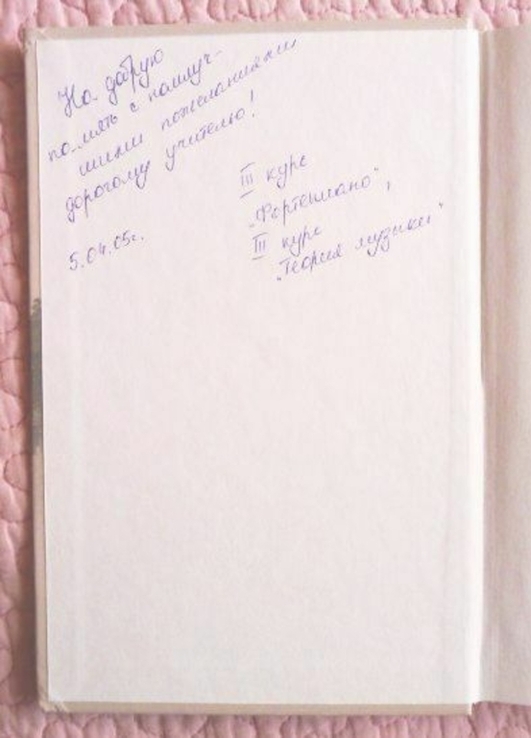 На добрую
память с наилуч-
шими пожеланиями
дорогому учителю!
5.04.05г.
III курс
"Фортепиано",
III курс
"Теория музыки"